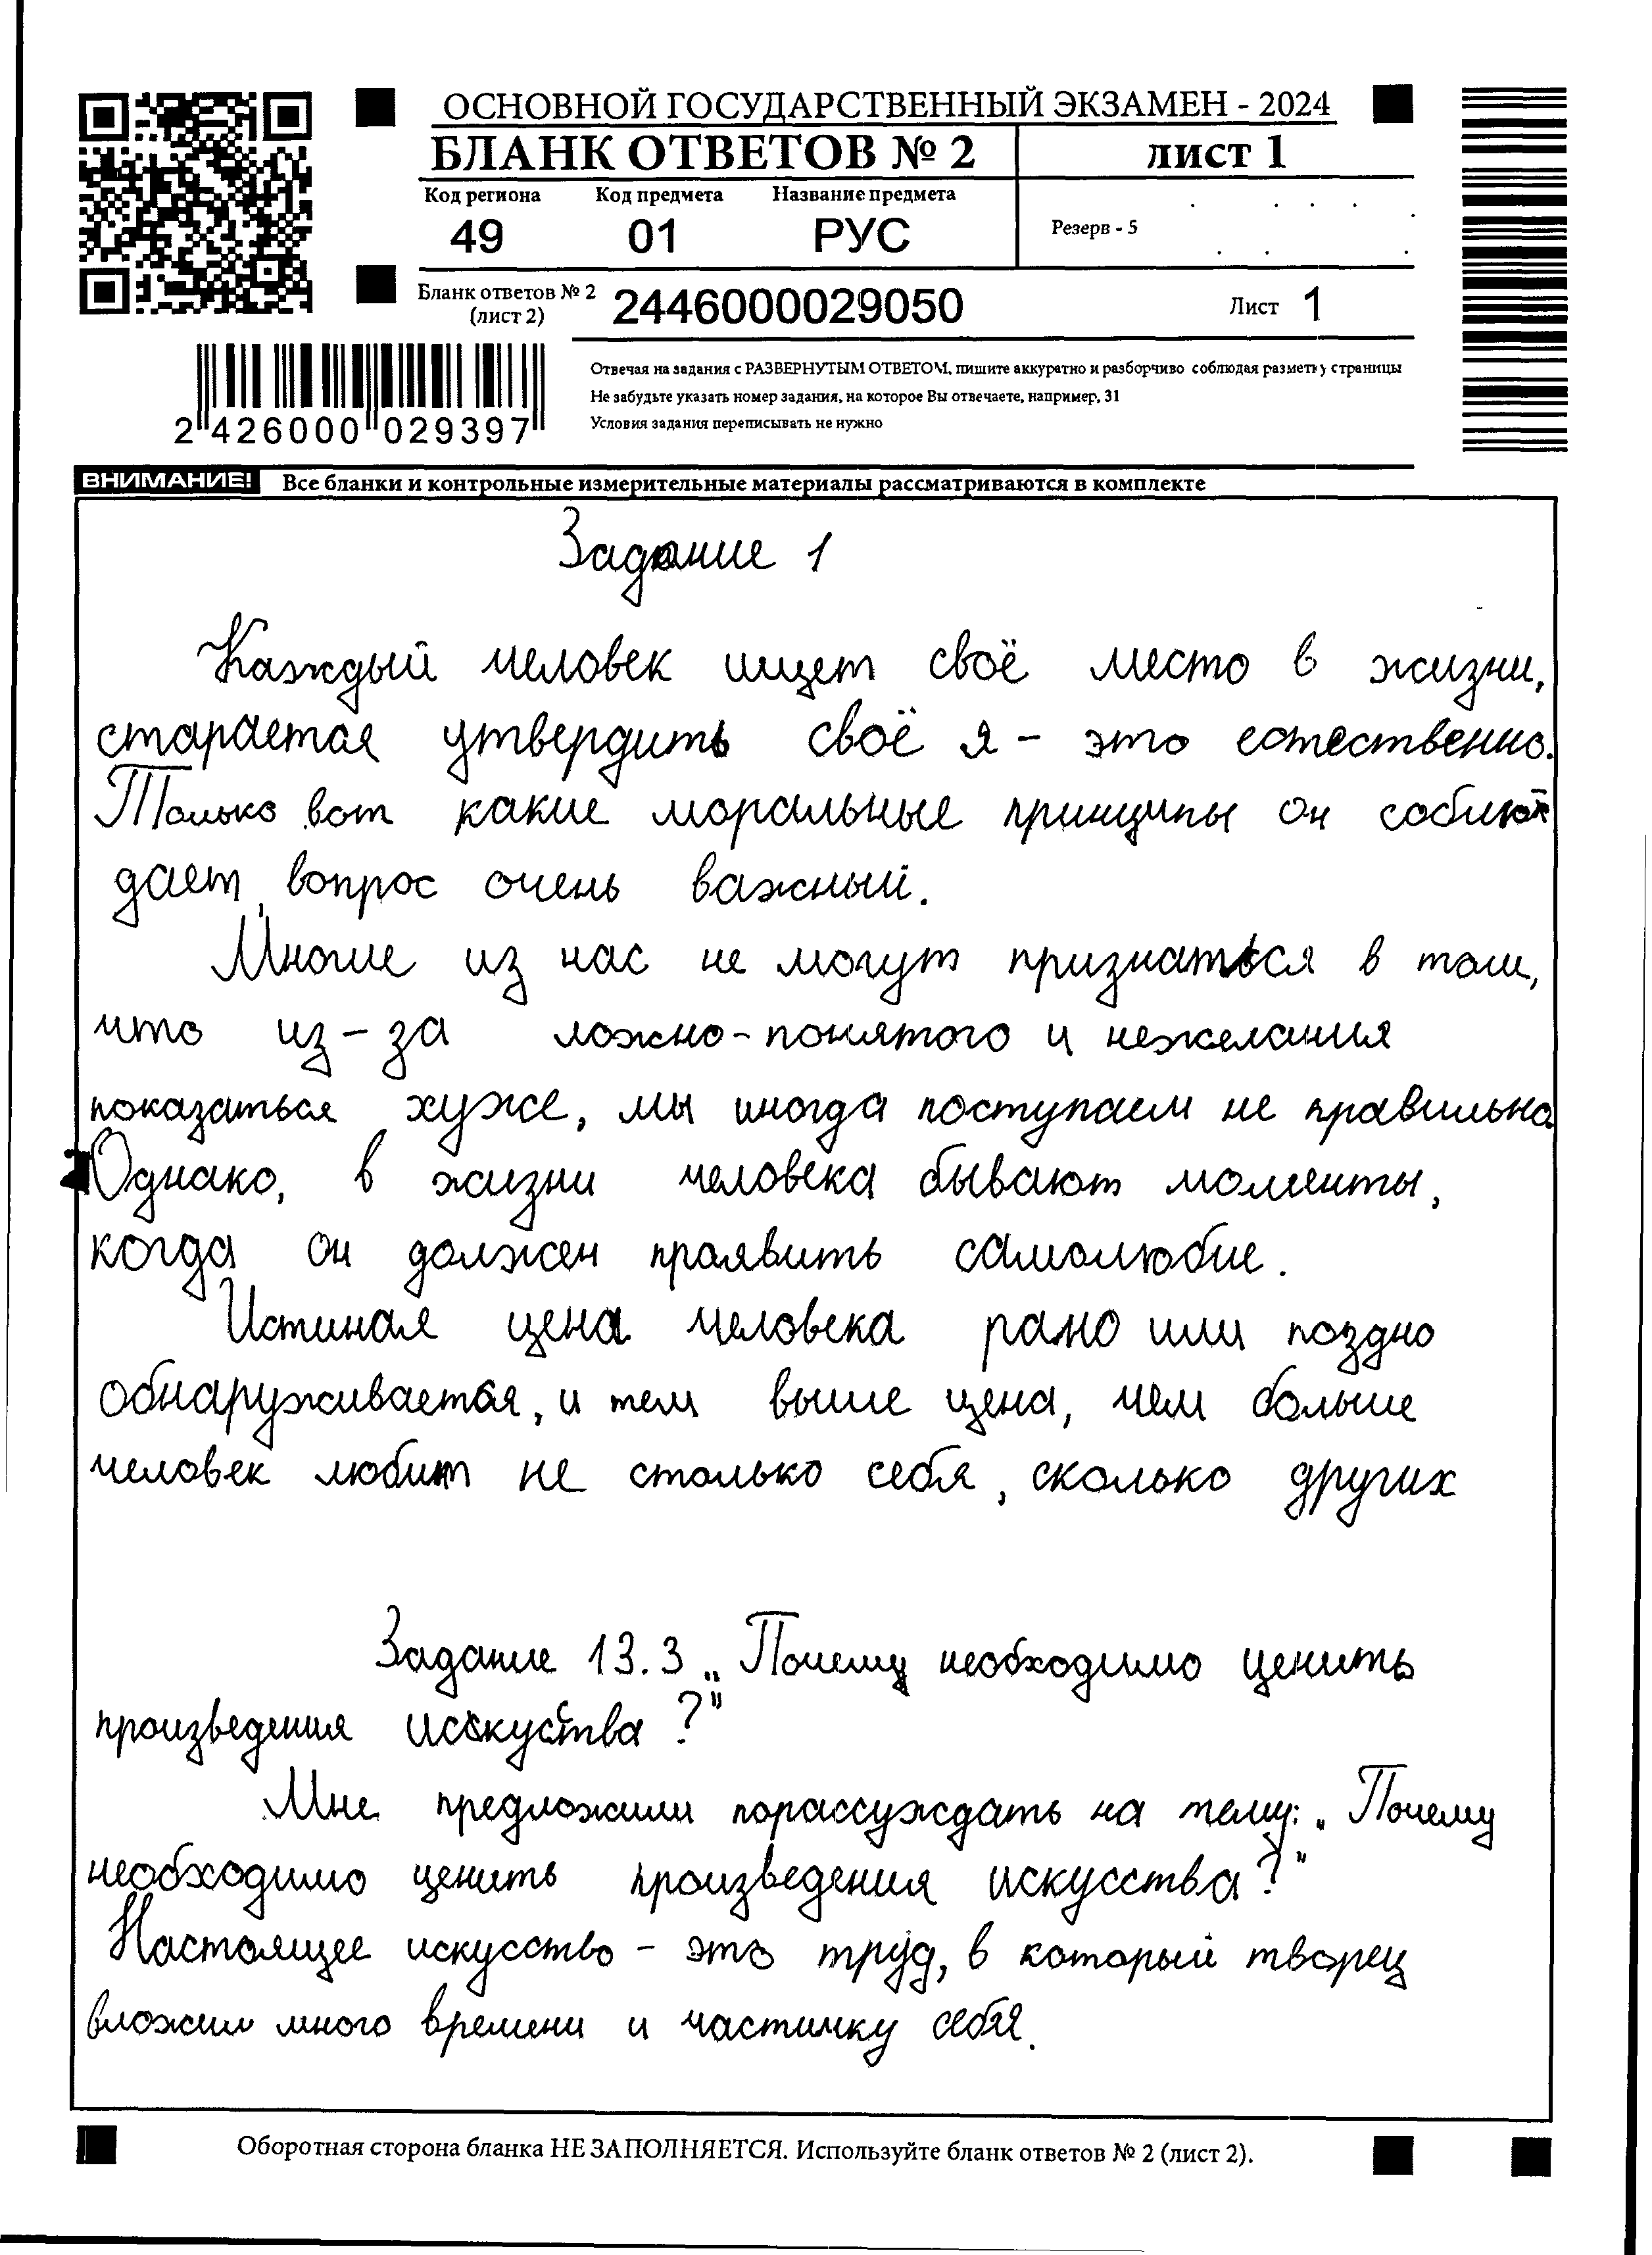 ОСНОВНОЙ ГОСУДАРСТВЕННЫЙ ЭКЗАМЕН - 2024
БЛАНК ОТВЕТОВ № 2
ЛИСТ 1
Код региона Код предмета Название предмета
49 01 РУС
Резерв - 5
Бланк ответов № 2 (лист 2) 2446000029050
Лист 1
Отвечая на задания с РАЗВЕРНУТЫМ ОТВЕТОМ, пишите аккуратно и разборчиво соблюдая разметку страницы
Не забудьте указать номер задания, на которое Вы отвечаете, например, 31
Условия задания переписывать не нужно
2 426000 029397
ВНИМАНИЕ! Все бланки и контрольные измерительные материалы рассматриваются в комплекте
Задание 1
Каждый человек ищет своё место в жизни,
старается утвердить своё я - это естественно.
Только вот какие моральные принципы он соблю
дает, вопрос очень важный.
Многие из нас не могут признаться в том,
что из-за ложно-понятого и нежелания
показаться хуже, мы иногда поступаем не правильно.
Однако, в жизни человека бывают моменты,
когда он должен проявить самолюбие.
Истиная цена человека рано или поздно
обнаруживается, и тем выше цена, чем больше
человек любит не столько себя, сколько других
Задание 13.3 „Почему необходимо ценить
произведения искуства?"
Мне предложили порассуждать на тему: „Почему
необходимо ценить произведения искусства?"
Настоящее искусство - это труд, в который творец
вложил много времени и частичку себя.
Оборотная сторона бланка НЕ ЗАПОЛНЯЕТСЯ. Используйте бланк ответов № 2 (лист 2).